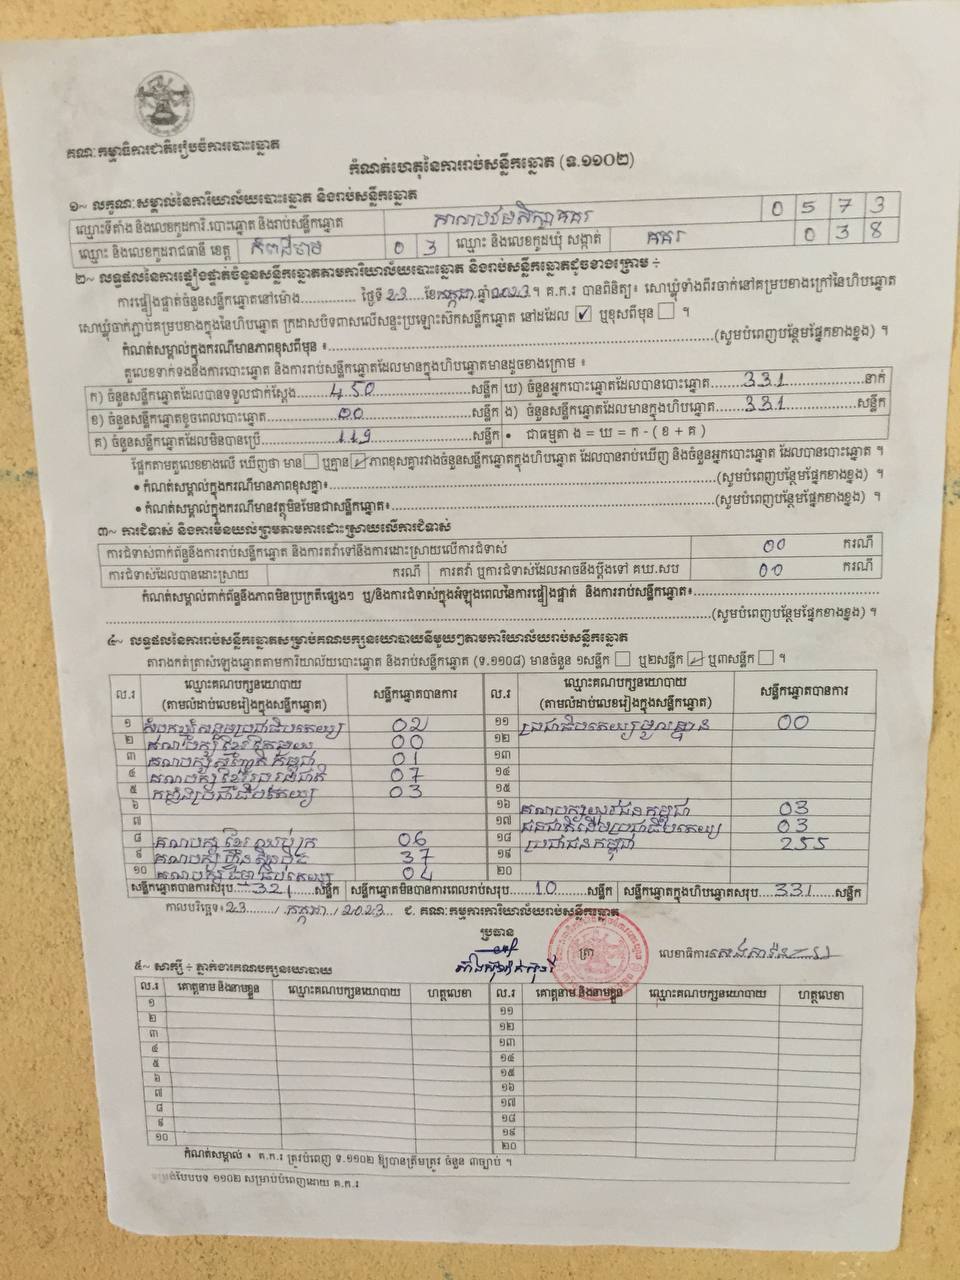 គណៈកម្មាធិការជាតិរៀបចំការបោះឆ្នោត
កំណត់ហេតុនៃការរាប់សន្លឹកឆ្នោត (ទ.១១០២)
១~ លក្ខណៈសម្គាល់នៃការិយាល័យបោះឆ្នោត និងរាប់សន្លឹកឆ្នោត
ឈ្មោះទីតាំង និងលេខកូដការិ.បោះឆ្នោត និងរាប់សន្លឹកឆ្នោត 0 5 7 3
ឈ្មោះ និងលេខកូដរាជធានី ខេត្ត កំពង់ចាម 0 3 ឈ្មោះ និងលេខកូដឃុំ សង្កាត់ គគរ 0 3 8
២~ លទ្ធផលនៃការផ្ទៀងផ្ទាត់ចំនួនសន្លឹកឆ្នោតតាមការិយាល័យបោះឆ្នោត និងរាប់សន្លឹកឆ្នោតដូចខាងក្រោម ÷
ការផ្ទៀងផ្ទាត់ចំនួនសន្លឹកឆ្នោតនៅម៉ោង............. ថ្ងៃទី 23 ខែ កក្កដា ឆ្នាំ 2023 ។ គ.ក.រ បានពិនិត្យ៖ សោឃ្លុំទាំងពីរចាក់នៅគម្របខាងក្រៅនៃហិបឆ្នោត
សោឃ្លុំចាក់ភ្ជាប់គម្របខាងក្នុងនៃហិបឆ្នោត ក្រដាសបិទពាសលើសន្ទះប្រឡោះស៊កសន្លឹកឆ្នោត នៅដដែល ☑ ឬខុសពីមុន ☐ ។
កំណត់សម្គាល់ក្នុងករណីមានភាពខុសពីមុន ៖ (សូមបំពេញបន្ថែមផ្នែកខាងខ្នង) ។
តួលេខទាក់ទងនឹងការបោះឆ្នោត និងការរាប់សន្លឹកឆ្នោតដែលមានក្នុងហិបឆ្នោតមានដូចខាងក្រោម ៖
ក) ចំនួនសន្លឹកឆ្នោតដែលបានទទួលជាក់ស្តែង 450 សន្លឹក ឃ) ចំនួនអ្នកបោះឆ្នោតដែលបានបោះឆ្នោត 331 នាក់
ខ) ចំនួនសន្លឹកឆ្នោតខូចពេលបោះឆ្នោត 00 សន្លឹក ង) ចំនួនសន្លឹកឆ្នោតដែលមានក្នុងហិបឆ្នោត 331 សន្លឹក
គ) ចំនួនសន្លឹកឆ្នោតដែលមិនបានប្រើ 119 សន្លឹក • ជាធម្មតា ង = ឃ = ក - ( ខ + គ )
ផ្អែកតាមតួលេខខាងលើ ឃើញថា មាន ☐ ឬគ្មាន ☑ ភាពខុសគ្នារវាងចំនួនសន្លឹកឆ្នោតក្នុងហិបឆ្នោត ដែលបានរាប់ឃើញ និងចំនួនអ្នកបោះឆ្នោត ដែលបានបោះឆ្នោត ។
• កំណត់សម្គាល់ក្នុងករណីមានភាពខុសគ្នា៖ (សូមបំពេញបន្ថែមផ្នែកខាងខ្នង) ។
• កំណត់សម្គាល់ក្នុងករណីមានវត្ថុមិនមែនជាសន្លឹកឆ្នោត៖ (សូមបំពេញបន្ថែមផ្នែកខាងខ្នង) ។
៣~ ការជំទាស់ និងការមិនយល់ព្រមតាមការដោះស្រាយលើការជំទាស់
ការជំទាស់ពាក់ព័ន្ធនឹងការរាប់សន្លឹកឆ្នោត និងការតវ៉ាទៅនឹងការដោះស្រាយលើការជំទាស់ 00 ករណី
ការជំទាស់ដែលបានដោះស្រាយ ករណី ការតវ៉ា ឬការជំទាស់ដែលអាចនឹងប្តឹងទៅ គឃ.សប 00 ករណី
កំណត់សម្គាល់ពាក់ព័ន្ធនឹងភាពមិនប្រក្រតីផ្សេងៗ ឬ/និងការជំទាស់ក្នុងអំឡុងពេលនៃការផ្ទៀងផ្ទាត់ និងការរាប់សន្លឹកឆ្នោត៖
(សូមបំពេញបន្ថែមផ្នែកខាងខ្នង) ។
៤~ លទ្ធផលនៃការរាប់សន្លឹកឆ្នោតសម្រាប់គណបក្សនយោបាយនីមួយៗតាមការិយាល័យរាប់សន្លឹកឆ្នោត
តារាងកត់ត្រាសំឡេងឆ្នោតតាមការិយាល័យបោះឆ្នោត និងរាប់សន្លឹកឆ្នោត (ទ.១១០៨) មានចំនួន ១សន្លឹក ☐ ឬ២សន្លឹក ☑ ឬ៣សន្លឹក ☐ ។
ល.រ ឈ្មោះគណបក្សនយោបាយ (តាមលំដាប់លេខរៀងក្នុងសន្លឹកឆ្នោត) សន្លឹកឆ្នោតបានការ ល.រ ឈ្មោះគណបក្សនយោបាយ (តាមលំដាប់លេខរៀងក្នុងសន្លឹកឆ្នោត) សន្លឹកឆ្នោតបានការ
១ សំបុកឃ្មុំសង្គមប្រជាធិបតេយ្យ 02 ១១ ប្រជាធិបតេយ្យមូលដ្ឋាន 00
២ គណបក្ស ខ្មែរ 00 ១២
៣ គណបក្ស កម្ពុជា 01 ១៣
៤ គណបក្ស ខ្មែររួបរួមជាតិ 07 ១៤
៥ កម្លាំងប្រជាធិបតេយ្យ 03 ១៥
៦ ១៦ គណបក្សយុវជនកម្ពុជា 03
៧ ១៧ ជនជាតិដើមប្រជាធិបតេយ្យ 03
៨ គណបក្ស ខ្មែរ ឈប់ក្រ 06 ១៨ ប្រជាជនកម្ពុជា 255
៩ គណបក្ស ហ្វ៊ុនស៊ិនប៉ិច 37 ១៩
១០ គណបក្ស ធម្មាធិបតេយ្យ 04 ២០
សន្លឹកឆ្នោតបានការសរុប 321 សន្លឹក សន្លឹកឆ្នោតមិនបានការពេលរាប់សរុប 10 សន្លឹក សន្លឹកឆ្នោតក្នុងហិបឆ្នោតសរុប 331 សន្លឹក
កាលបរិច្ឆេទ៖ 23 / កក្កដា / 2023 ជ. គណៈកម្មការការិយាល័យរាប់សន្លឹកឆ្នោត
ប្រធាន ត្រា លេខាធិការ
៥~ សាក្សី ÷ ភ្នាក់ងារគណបក្សនយោបាយ
ល.រ គោត្តនាម និងនាមខ្លួន ឈ្មោះគណបក្សនយោបាយ ហត្ថលេខា ល.រ គោត្តនាម និងនាមខ្លួន ឈ្មោះគណបក្សនយោបាយ ហត្ថលេខា
១ ១១
២ ១២
៣ ១៣
៤ ១៤
៥ ១៥
៦ ១៦
៧ ១៧
៨ ១៨
៩ ១៩
១០ ២០
កំណត់សម្គាល់ • គ.ក.រ ត្រូវបំពេញ ទ.១១០២ ឱ្យបានត្រឹមត្រូវ ចំនួន ៣ច្បាប់ ។
ទម្រង់បែបបទ ១១០២ សម្រាប់បំពេញដោយ គ.ក.រ